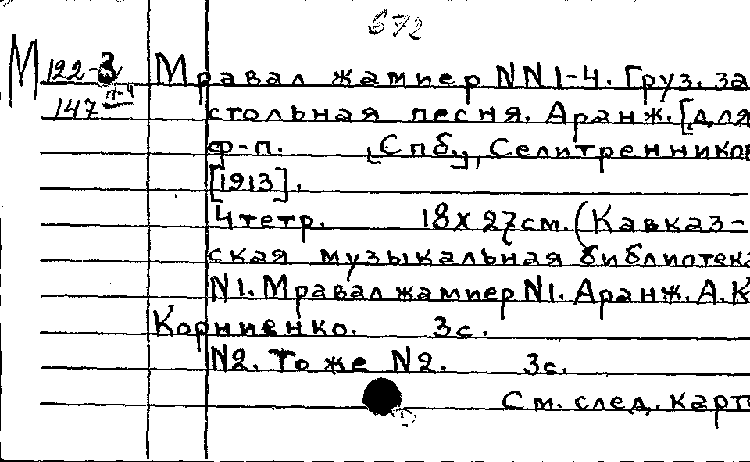 672
М 122-3 Мравал жамиер NN1-4. Груз. за
147 стольная песня. Аранж. [для
ф-п. [Спб.], Селитренников
[1913].
4 тетр. 18 x 27 см. (Кавказ-
ская музыкальная библиотека
N1. Мравал жамиер N1. Аранж. А.К
Корниенко. 3с.
N2. То же N2. 3с.
См. след. карт